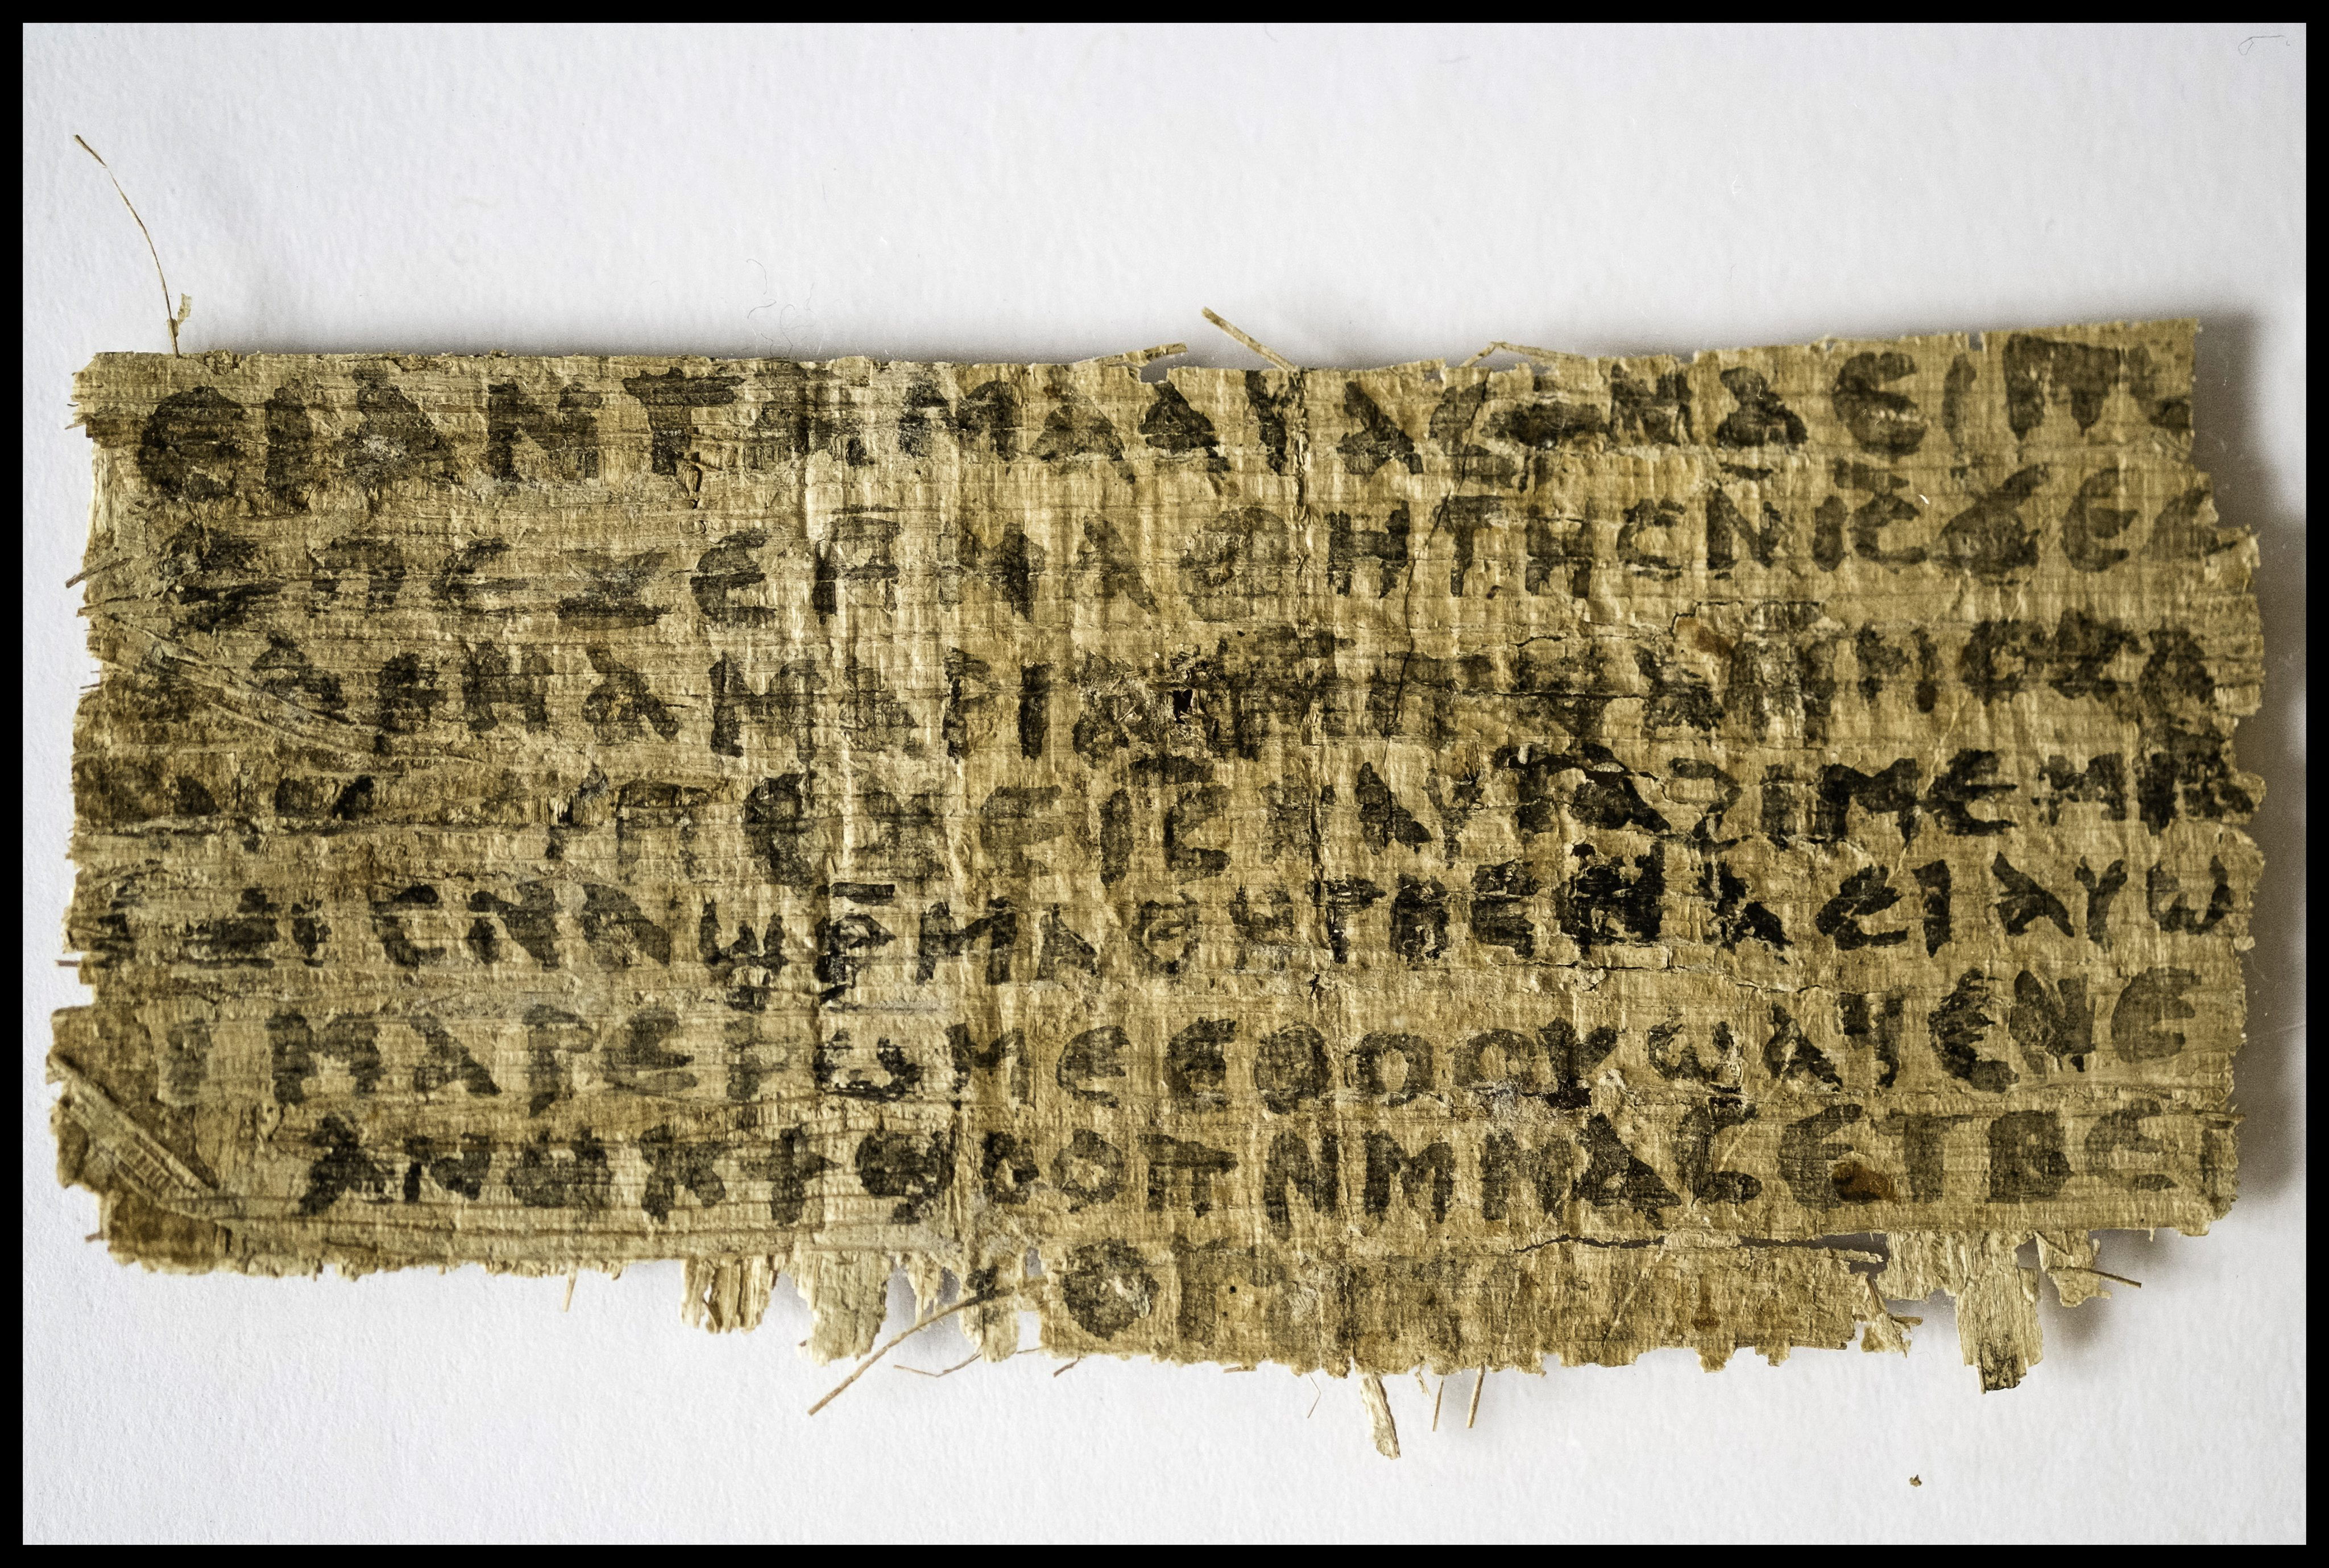 ⲉⲓ ⲁⲛ ⲧⲁⲙⲁⲁⲩ ⲁⲥϯ ⲛⲁⲉⲓ ⲡⲱ
ⲡⲉϫⲉ ⲙⲙⲁⲑⲏⲧⲏⲥ ⲛⲓ̅ⲥ̅ ϫⲉ ⲥ
ⲁⲣⲛⲁ ⲙⲁⲣⲓⲁⲙ
ⲡⲉϫⲉ ⲓ̅ⲥ̅ ⲛⲁⲩ ⲧⲁϩⲓⲙⲉ ⲙⲛ
ⲥⲛⲁϣⲣ̅ⲙⲁⲑⲏⲧⲏⲥ ⲛⲁⲉⲓ ⲁⲩⲱ
ⲙⲁⲣⲉⲣⲱⲙⲉ ⲉⲑⲟⲟⲩ ϣⲁϥⲉⲛⲉ
ⲁⲛⲟⲕ ϯϣⲟⲟⲡ ⲛⲙⲙⲁⲥ ⲉⲧⲃⲉ